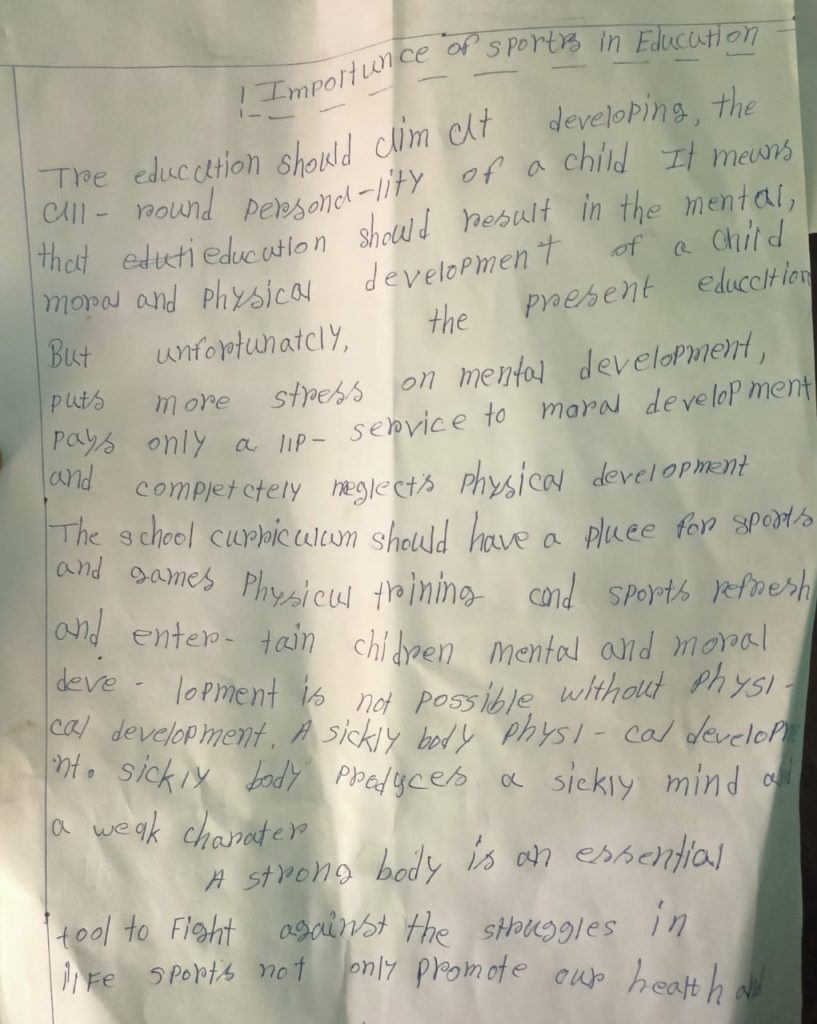 ! Importunce of sports in Education
The education should aim at developing, the
all-round personal-lity of a child It meuns
that eduti education should result in the mental,
moral and physical development of a child
But unfortunatcly, the present education
puts more stress on mental development,
pays only a lip-service to moral development
and completctely neglects physical development
The school curriculum should have a pluce for sports
and games Physicul trining and sports refresh
and enter-tain chidren mental and moral
deve-lopment is not possible without physi-
cal development. A sickly body physi-cal developme
nt. sickly body produces a sickly mind a
a weak charater
A strong body is an essential
tool to Fight against the struggles in
life sports not only promote our health and